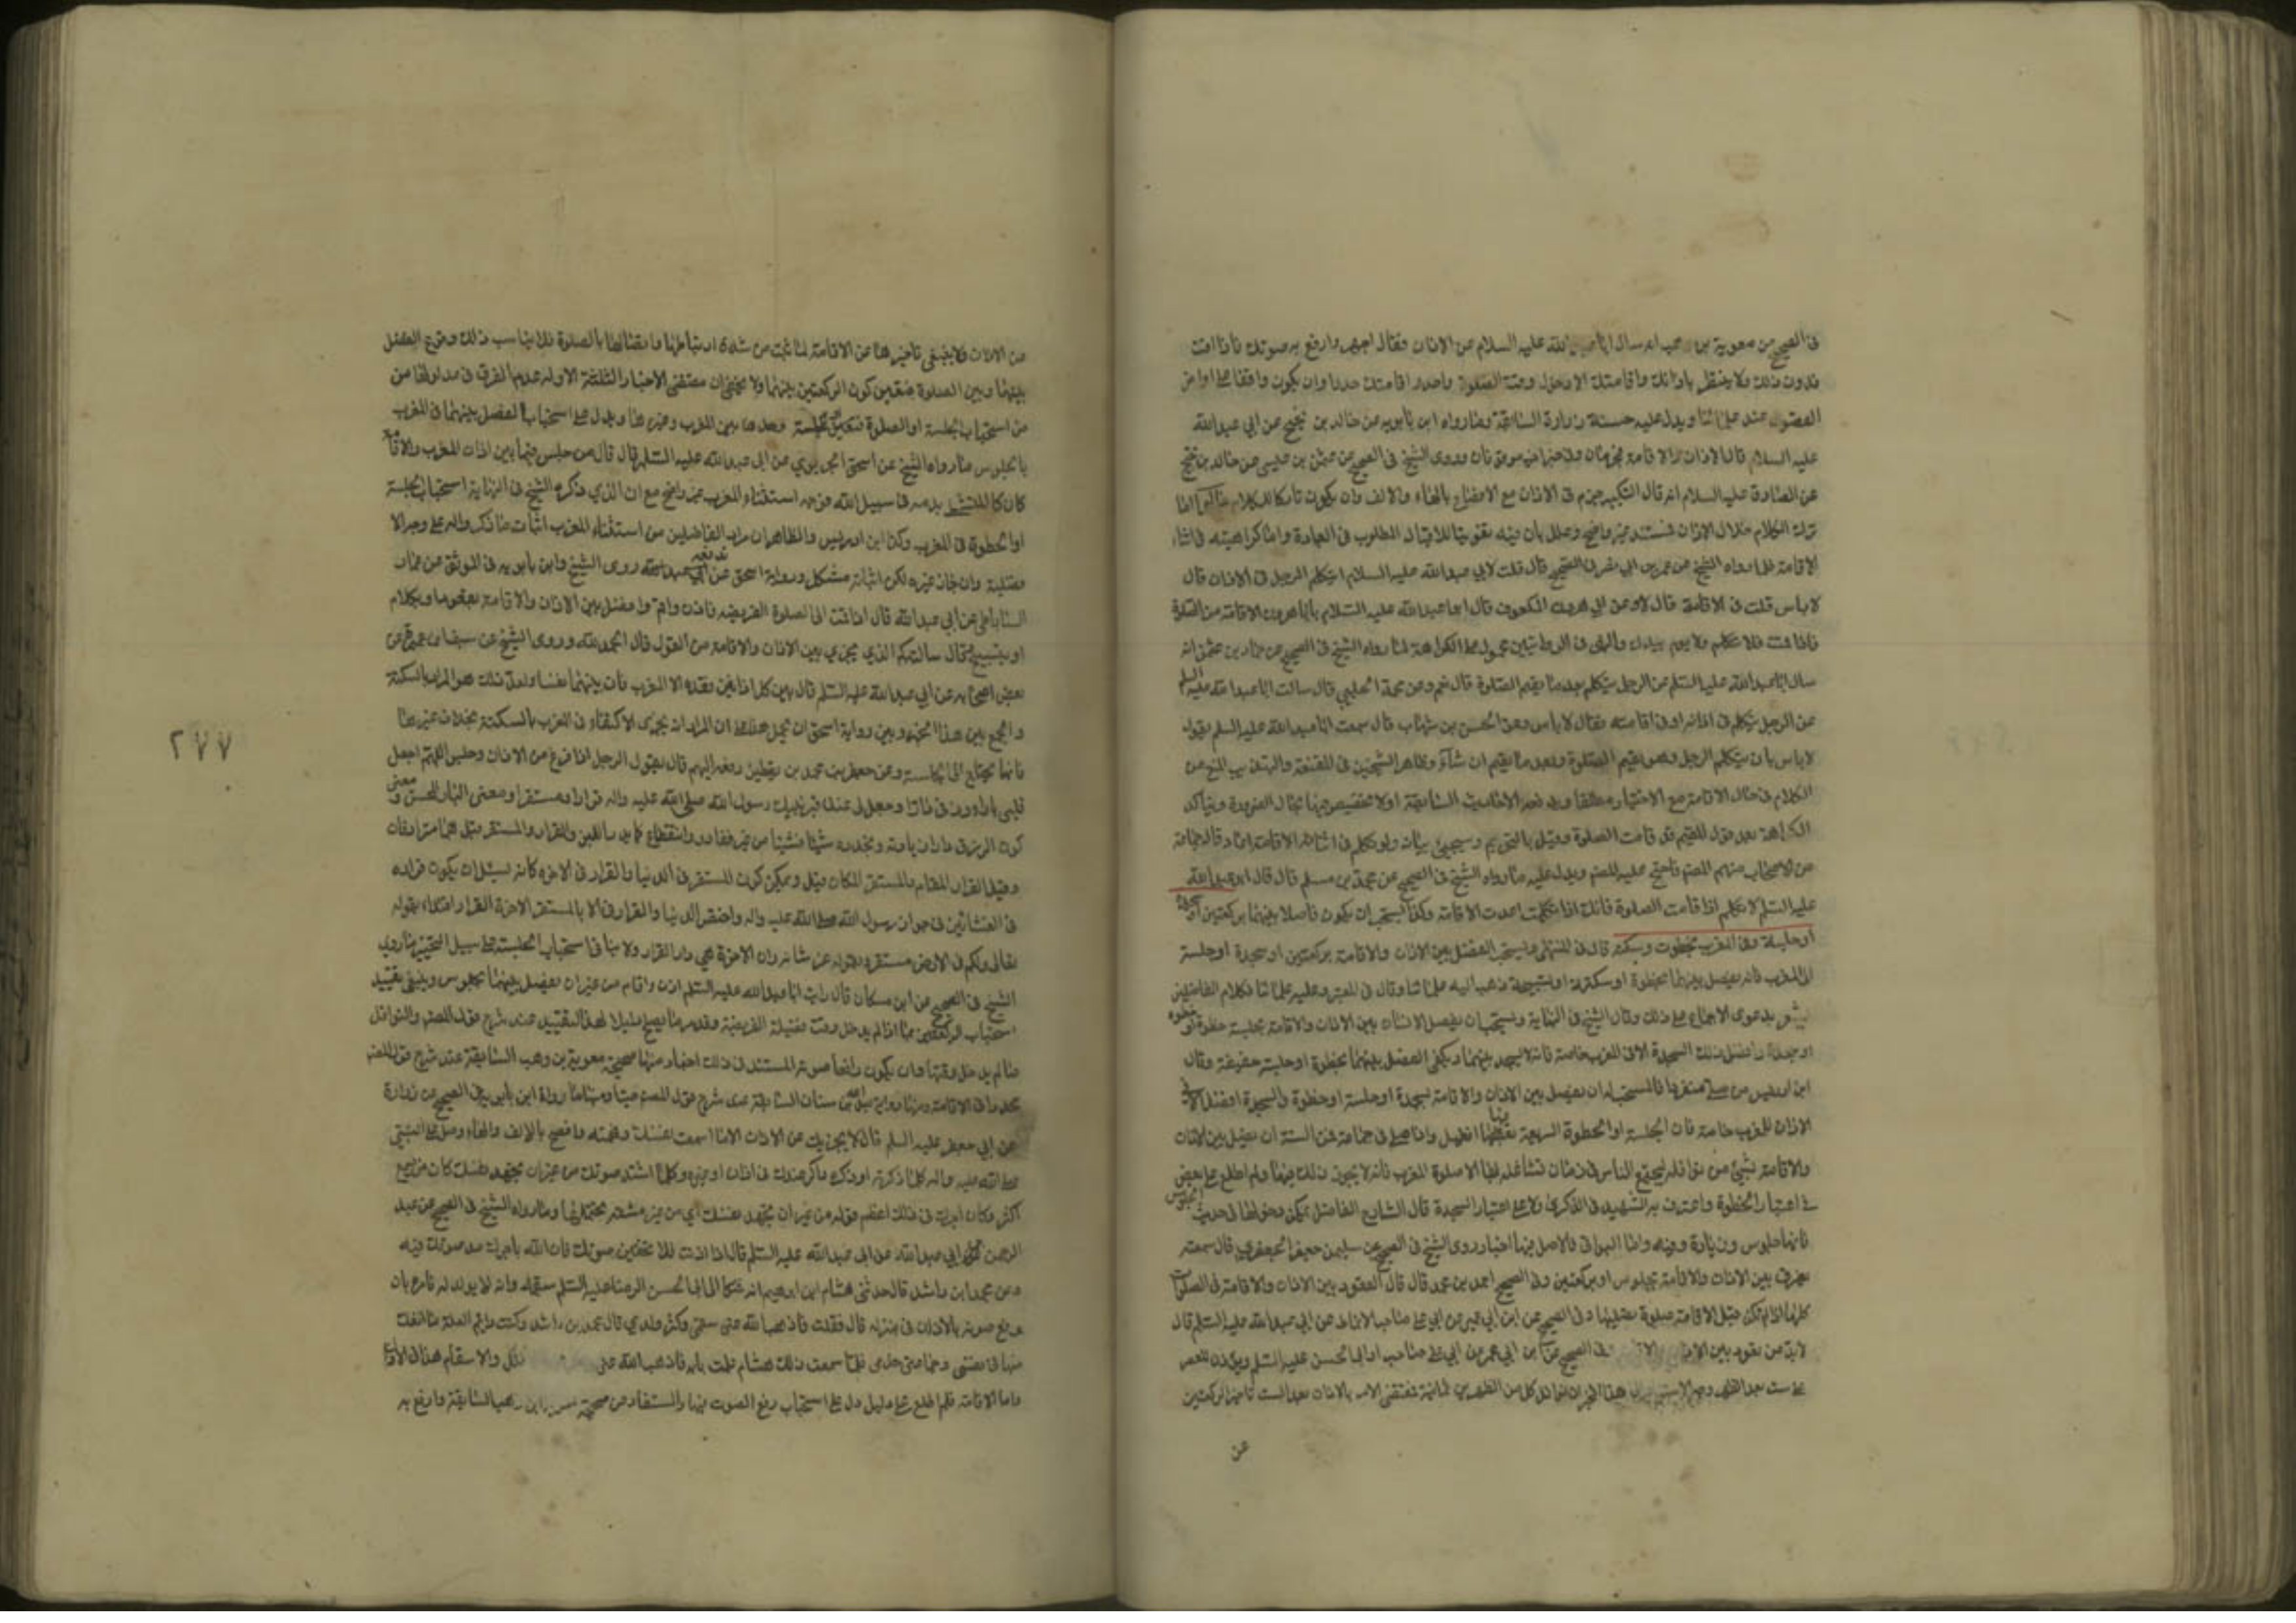 فى الصحيح عن معوية بن وهب انه سال ابا عبد الله عليه السلام عن الاذان فقال اجهر وارفع به صوتك فاذا اقمت
فدون ذلك ولا ينتظر باذانك واقامتك الا دخول وقت الصلوة واحدر اقامتك حدرا وان يكون واقفا على اواخر
الفصول عند علمائنا ويدل عليه حسنة زرارة السابقة وما رواه ابن بابويه عن خالد بن نجيح عن ابي عبد الله
عليه السلام قال الاذان والاقامة مجزومان وفى خبر اخر موقوفان وروى الشيخ فى الصحيح عن عثمن بن عيسى عن خالد بن نجيح
عن الصادق عليه السلام انه قال التكبير جزم فى الاذان مع الافصاح بالهاء والالف وان يكون تاركا للكلام خلالهما اما
ترك الكلام خلال الاذان فمستنده غير واضح وعلل بأن فيه تفويتا للاقبال المطلوب فى العبادة واما كراهيته فى اثناء
الاقامة فلما رواه الشيخ عن عمرو بن ابي نصر فى الصحيح قال قلت لابي عبد الله عليه السلام ايتكلم الرجل فى الاذان قال
لا باس قلت فى الاقامة قال لا وعن ابي هرون المكفوف قال ابو عبد الله عليه السلام يا ابا هرون الاقامة من الصلوة
فاذا اقمت فلا تتكلم ولا يوم بيدك والنهى فى الروايتين محمول على الكراهة لما رواه الشيخ فى الصحيح عن حماد بن عثمن انه
سال ابا عبد الله عليه السلم عن الرجل يتكلم بعد ما يقيم الصلوة قال نعم وعن محمد الحلبي قال سالت ابا عبد الله عليه السلم
عن الرجل يتكلم فى اذانه او فى اقامته فقال لا باس وعن الحسن بن شهاب قال سمعت ابا عبد الله عليه السلم يقول
لا باس بان يتكلم الرجل وهو يقيم الصلوة وبعد ما يقيم ان شاء وظاهر الشيخين فى المقنعة والتهذيب المنع من
الكلام فى حال الاقامة مع الاختيار مطلقا
الكراهة بعد قول المقيم قد قامت الصلوة وقيل بالتحريم وسيجيئ بيانه ولو تكلم فى اثناء الاقامة اعاد قاله جماعة
من الاصحاب منهم المصنف ويدل عليه ما رواه الشيخ فى الصحيح عن محمد بن مسلم قال قال ابو عبد الله
عليه السلم لا تتكلم اذا قامت الصلوة فانك اذا تكلمت اعدت الاقامة وكذا يستحب ان يكون فاصلا بينهما بركعتين او سجدة
او جلسة وفى المغرب بخطوة وسكتة قال فى المنتهى ويستحب الفصل بين الاذان والاقامة بركعتين او سجدة او جلسة
الا المغرب فانه يفصل بينهما بخطوة او سكتة او تسبيحة ذهب اليه علمائنا وقال فى المعتبر وعليه علمائنا فكلام الفاضلين
يشعر بدعوى الاجماع على ذلك وقال الشيخ فى النهاية ويستحب ان يفصل الانسان بين الاذان والاقامة بجلسة او خطوة او
سجدة وافضل ذلك السجدة الا فى المغرب خاصة فانه لا يسجد بينهما ويكفى الفصل بينهما بخطوة او جلسة خفيفة وقال
ابن ادريس من صلى منفردا فالمستحب له ان يفصل بين الاذان والاقامة بسجدة او جلسة او خطوة والسجدة افضل الا فى
الاذان للمغرب خاصة فان الجلسة او الخطوة السريعة فيها افضل واذا صلى فى جماعة فمن السنة ان يفصل بين الاذان
والاقامة بشيئ من نوافله ليجتمع الناس فى زمان تشاغله بها الا صلوة المغرب فانه لا يجوز ذلك فيها ولم اطلع على نص
فى اعتبار الخطوة واعترف به الشهيد فى الذكرى ولا على اعتبار السجدة قال الشارح الفاضل يمكن دخولها فى حديث الجلوس
فانها جلوس وزيادة وفيه واما البواقى فالاصل فيها اخبار روى الشيخ فى الصحيح عن سليمن بن جعفر الجعفري قال سمعته
يقول افرق بين الاذان والاقامة بجلوس او بركعتين وفى الصحيح احمد بن محمد قال قال القعود بين الاذان والاقامة فى الصلوات
كلها اذا لم تكن قبل الاقامة صلوة يصليها وفى الصحيح عن ابن ابي عمير عن ابي على صاحب الانماط عن ابي عبد الله عليه السلم قال
عن
من الاذان ولا ينبغى تاخيرهما عن الاقامة لما ثبت من شدة ارتباطها واتصالها بالصلوة فلا يناسب ذلك وقوع الفصل
بينهما وبين الصلوة فتعين كون الركعتين بينهما ولا يخفى ان مقتضى الاخبار الثلثة الاوله عدم الفرق فى مدلولها من
من استحباب الجلسة او الصلوة بين المغرب وغيرها ويدل على استحباب الفصل بينهما فى المغرب
بالجلوس ما رواه الشيخ عن اسحق الجريري عن ابي عبد الله عليه السلم قال قال من جلس فيما بين اذان المغرب والاقامة
كان كالمتشحط بدمه فى سبيل الله فوجه استثناء المغرب غير واضح مع ان الذي ذكره الشيخ فى النهاية استحباب الجلسة
او الخطوة فى المغرب وكذا ابن ادريس والظاهر ان مراد الفاضلين من استثناء المغرب اثبات ما ذكر والله على وجه الا
فضلية وان جاز غيره لكن اثباته مشكل ورواية اسحق روى الشيخ وابن بابويه فى الموثق عن عمار
الساباطى عن ابي عبد الله قال اذا قمت الى الصلوة الفريضة فاذن واقم وافصل بين الاذان والاقامة بقعود او بكلام
او بتسبيح وقال سالته كم الذي يجزي بين الاذان والاقامة من القول قال الحمد لله وروى الشيخ عن سيف بن عميرة عن
بعض اصحابه عن ابي عبد الله عليه السلم قال بين كل اذانين قعدة الا المغرب فان بينهما نفسا ولعل ذلك هو المراد بالسكتة
والجمع بين هذا الخبر وبين رواية اسحق ان يحمل هذا على ان المراد ان يجزى الاكتفاء فى المغرب بالسكتة بخلاف غيرها
فانها يحتاج الى الجلسة وعن جعفر بن محمد بن يقطين رفعه اليهم قال يقول الرجل اذا فرغ من الاذان وجلس اللهم اجعل
قلبى بارا ورزقى دارا واجعل لى عند قبر نبيك رسول الله صلى الله عليه واله قرارا ومستقرا ومعنى البار المحسن ومعنى
كون الرزق دارا ان يادته وتجدده شيئا فشيئا من غير نفاد وانقطاع كما يدر اللبن والقرار والمستقر قيل هما مترادفان
وقيل القرار المقام والمستقر المكان وقيل ويمكن كون المستقر فى الدنيا والقرار فى الاخرة كانه يسئل ان يكون قراره
فى النشاتين فى جوار رسول الله صلى الله عليه واله واختص الدنيا والقرار فى الا بالمستقر الاخرة القرار اقتداء بقوله
تعالى ولكم فى الارض مستقر وبقوله عز شانه وان الاخرة هي دار القرار ولا ينافى استحباب الجلسة على سبيل التخيير ما روى
الشيخ فى الصحيح عن ابن مسكان قال رايت ابا عبد الله عليه السلم اذن واقام من غير ان يفصل بينهما بجلوس وينبغى تقييد
استحباب الركعتين بما اذا لم يدخل وقت فضيلة الفريضة وقد مر ما يصلح دليلا لهذا التقييد عند شرح قول المصنف والنوافل
ما لم يدخل وقتها وان يكون رافعا صوته المستند فى ذلك اخبار منها صحيحة معوية بن وهب السابقة عند شرح قول المصنف
محدرا فى الاقامة ومنها رواية عبد الله بن سنان السابقة عند شرح قول المصنف صيتا ومنها ما رواه ابن بابويه فى الصحيح عن زرارة
عن ابي جعفر عليه السلم قال لا يجزيك من الاذان الا ما اسمعت نفسك وفهمته وافصح بالالف والهاء وصل على النبي
صلى الله عليه واله كلما ذكرته او ذكره ذاكر عندك فى اذان او غيره وكلما اشتد صوتك من غير ان تجهد نفسك كان من يسمع
اكثر وكان اجرك فى ذلك اعظم قوله من غير ان تجهد نفسك اي من غير مشقة تحتملها وما رواه الشيخ فى الصحيح عن عبد
الرحمن بن ابي عبد الله عن ابي عبد الله عليه السلم قال اذا اذنت فلا تخفين صوتك فان الله ياجرك مد صوتك فيه
وعن محمد ابن راشد قال حدثنى هشام ابن ابرهيم انه شكا الى ابى الحسن الرضا عليه السلم سقمه وانه لا يولد له فامره بان
يرفع صوته بالاذان فى منزله قال ففعلت فاذهب الله عنى سقمى وكثر ولدي قال محمد بن راشد وكنت دائم العلة ما انفك
منها فى نفسى وجماعة خدمى فلما سمعت ذلك من هشام عملت به فاذهب الله عنى العلل والاسقام هذا فى الاذان
واما الاقامة فلم اطلع على دليل دل على استحباب رفع الصوت فيها والمستفاد من صحيحة ابن وهب السابقة وارفع به
٢٧٧